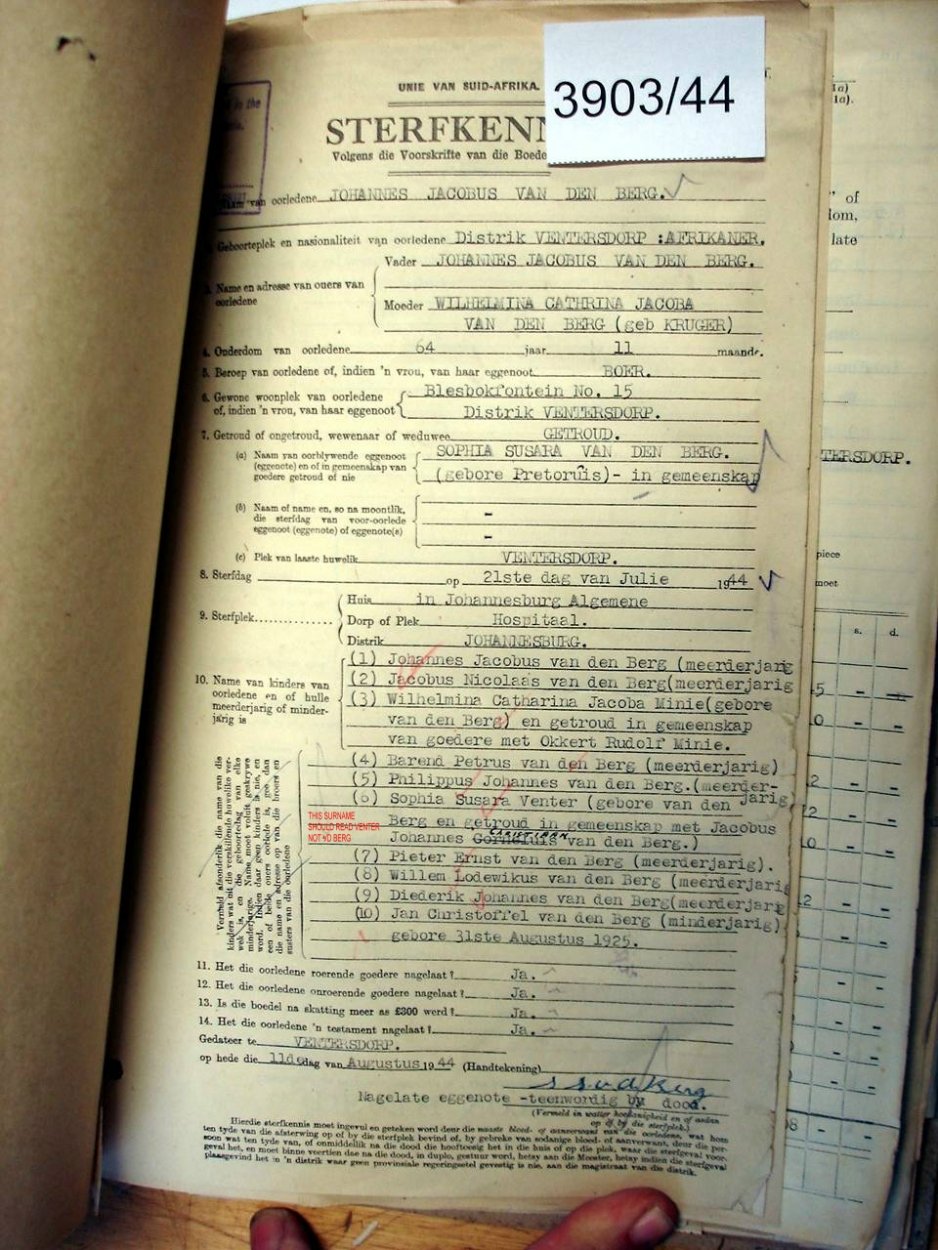 3903/44
UNIE VAN SUID-AFRIKA.
STERFKENN
Volgens die Voorskrifte van die Boede
in the
van oorledene JOHANNES JACOBUS VAN DEN BERG.
Geboorteplek en nasionaliteit van oorledene Distrik VENTERSDORP :AFRIKANER.
Vader JOHANNES JACOBUS VAN DEN BERG.
3. Name en adresse van ouers van
oorledene
Moeder WILHELMINA CATHRINA JACOBA
VAN DEN BERG (geb KRUGER)
4. Onderdom van oorledene 64 jaar 11 maande.
5. Beroep van oorledene of, indien 'n vrou, van haar eggenoot BOER.
6. Gewone woonplek van oorledene
of, indien 'n vrou, van haar eggenoot
Blesbokfontein No. 15
Distrik VENTERSDORP.
7. Getroud of ongetroud, wewenaar of weduwee GETROUD.
(a) Naam van oorblywende eggenoot
(eggenote) en of in gemeenskap van
goedere getroud of nie
SOPHIA SUSARA VAN DEN BERG.
(gebore Pretoruis)- in gemeenskap
(b) Naam of name en, so na moontlik,
die sterfdag van voor-oorlede
eggenoot (eggenote) of eggenote(s)
-
-
(c) Plek van laaste huwelik VENTERSDORP.
8. Sterfdag op 21ste dag van Julie 1944
9. Sterfplek
Huis in Johannesburg Algemene
Dorp of Plek Hospitaal.
Distrik JOHANNESBURG.
10. Name van kinders van
oorledene en of hulle
meerderjarig of minder-
jarig is
(1) Johannes Jacobus van den Berg (meerderjarig
(2) Jacobus Nicolaas van den Berg(meerderjarig
(3) Wilhelmina Catharina Jacoba Minie(gebore
van den Berg) en getroud in gemeenskap
van goedere met Okkert Rudolf Minie.
(4) Barend Petrus van den Berg (meerderjarig)
(5) Philippus Johannes van den Berg.(meerder-
jarig
(6) Sophia Susara Venter (gebore van den
Berg en getroud in gemeenskap met Jacobus
Johannes Cornelius CHRISTIAAN van den Berg.)
THIS SURNAME
SHOULD READ VENTER
NOT VD BERG
(7) Pieter Ernst van den Berg (meerderjarig).
(8) Willem Lodewikus van den Berg (meerderjarig
(9) Diederik Johannes van den Berg(meerderjarg
(10) Jan Christoffel van den Berg (minderjarig)
gebore 31ste Augustus 1925.
Vermeld afsonderlik die name van die
kinders wat uit die verskillende huwelike ver-
wek is, en die geboortedag van elke
minderjarige. Name moet voluit geskrywe
word. Indien daar geen kinders is nie, en
een of beide ouers oorlede is, gee dan
die name en adresse op van die broers en
susters van die oorledene
11. Het die oorledene roerende goedere nagelaat? Ja.
12. Het die oorledene onroerende goedere nagelaat? Ja.
13. Is die boedel na skatting meer as £300 werd? Ja.
14. Het die oorledene 'n testament nagelaat? Ja.
Gedateer te VENTERSDORP.
op hede die 11de dag van Augustus 1944 (Handtekening)
S S v d Berg
Nagelate eggenote -teenwordig by dood.
(Vermeld in watter hoedanigheid en of aanwesig
op of by die sterfplek.)
Hierdie sterfkennis moet ingevul en geteken word deur die naaste bloed- of aanverwant van die oorledene, wat hom
ten tyde van die afsterwing op of by die sterfplek bevind of, by gebreke van sodanige bloed- of aanverwant, deur die per-
soon wat ten tyde van, of onmiddellik na die dood die hooftoesig het in die huis of op die plek, waar die sterfgeval voor-
geval het, en moet binne veertien dae na die dood, in duplo, gestuur word, hetsy aan die Meester, hetsy indien die sterfgeval
plaasgevind het in 'n distrik waar geen provinsiale regeringsetel gevestig is nie, aan die magistraat van die distrik.
1a)
1a).
" of
dom,
late
TERSDORP.
piece
moet
s. d.